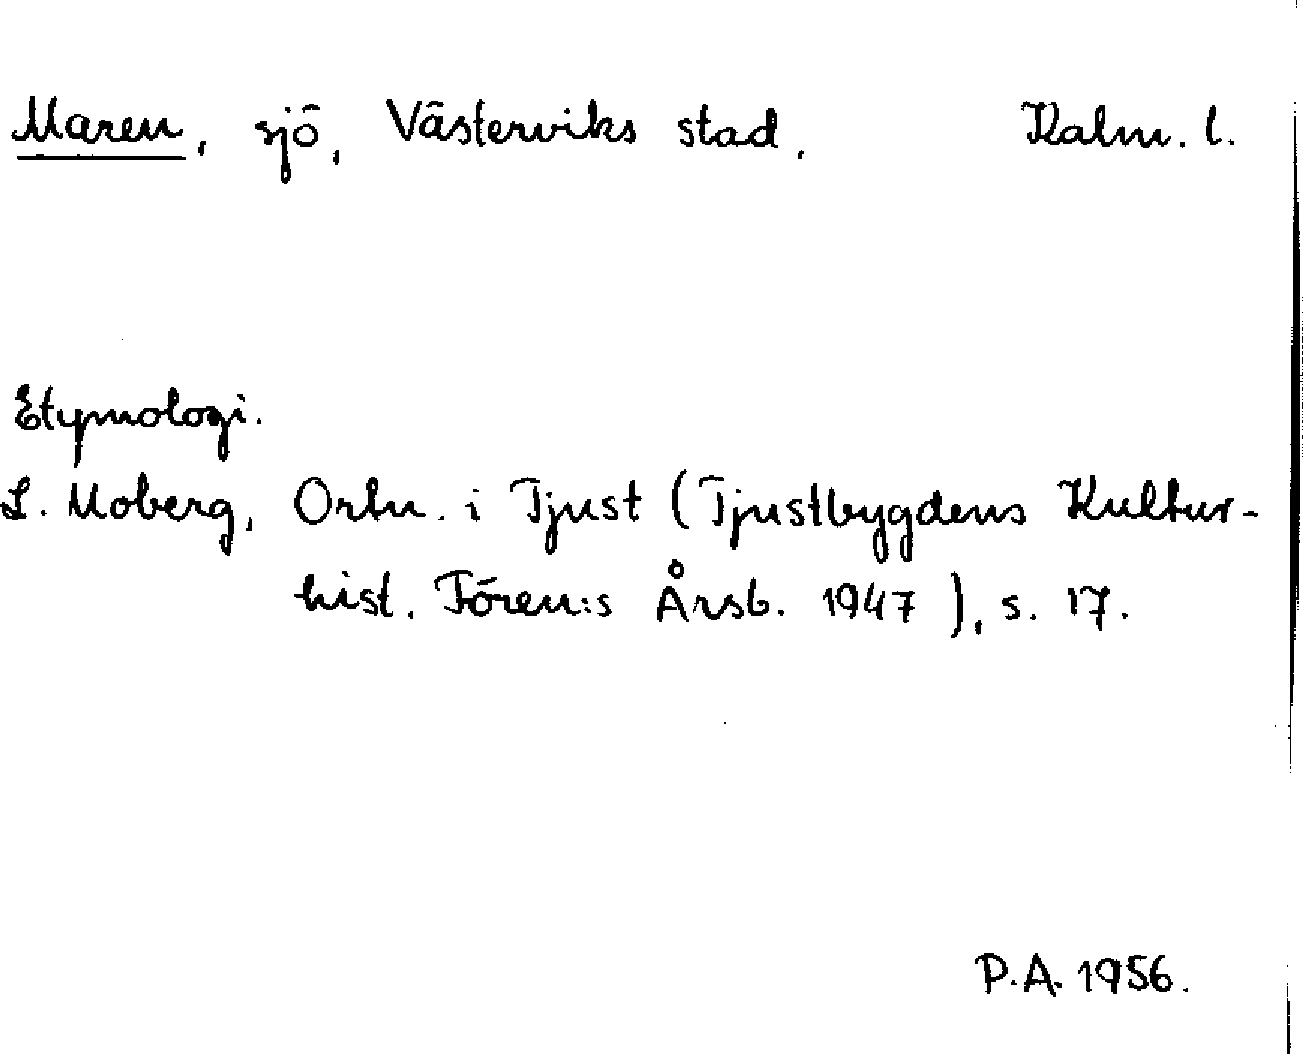 Maren, sjö, Västerviks stad. Kalm. l.
Etymologi.
L. Moberg, Ortn. i Tjust (Tjustbygdens Kultur-
hist. Fören:s Årsb. 1947), s. 17.
P.A. 1956.